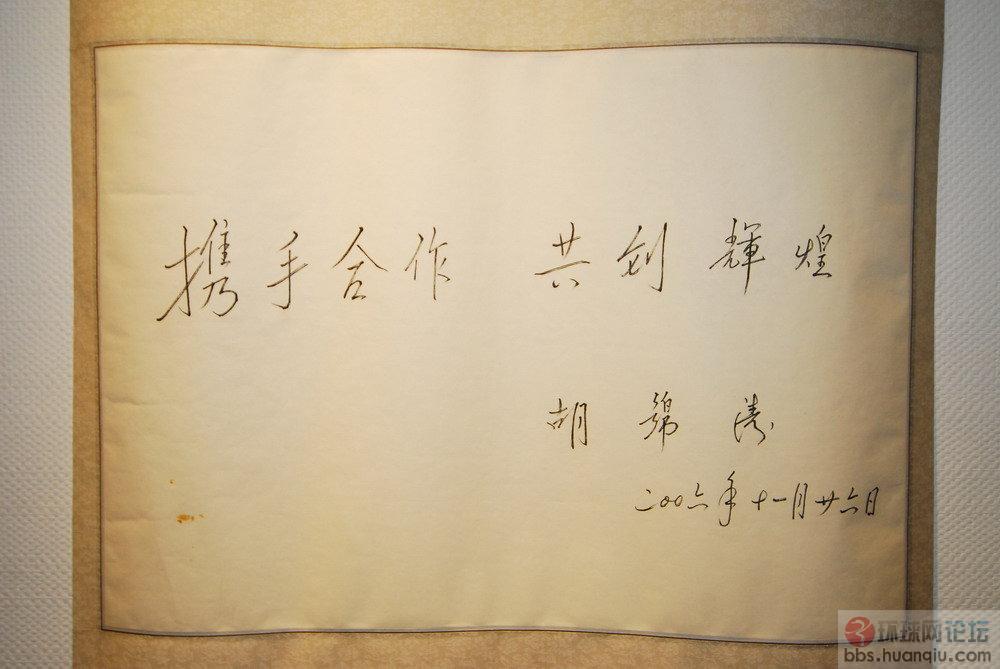 携手合作 共创辉煌
胡锦涛
二00六年十一月廿六日
环球网论坛
bbs.huanqiu.com